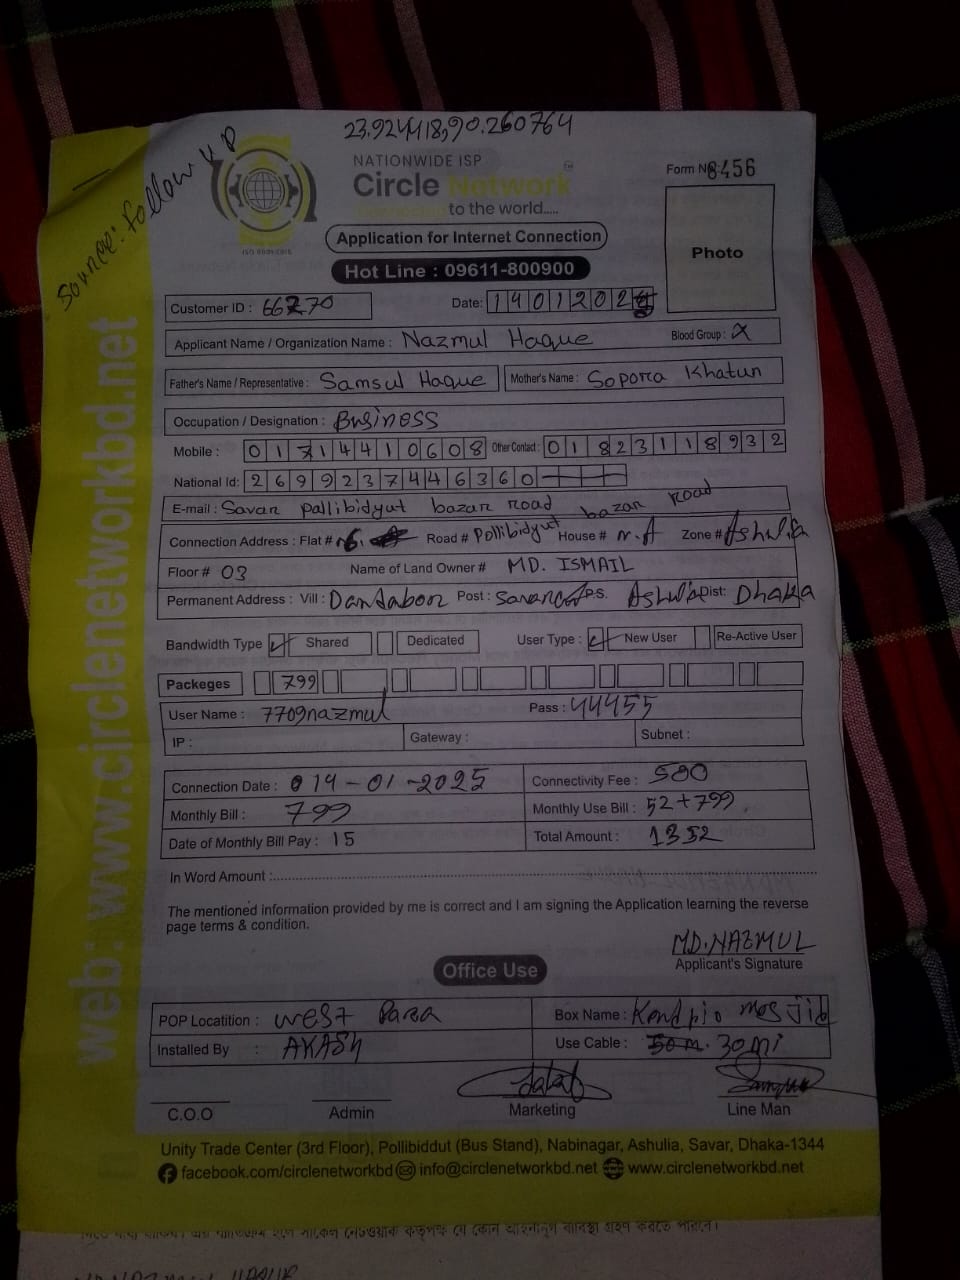 23.924418,90.260764
Source: Follow up
NATIONWIDE ISP
Form No 6456
Circle Network
Connected to the world.....
ISO 9001:2015
Application for Internet Connection
Photo
Hot Line : 09611-800900
Customer ID : 66270 Date: 1401202
Applicant Name / Organization Name : Nazmul Haque Blood Group : X
Father's Name / Representative : Samsul Haque Mother's Name : Sopora Khatun
Occupation / Designation : Business
Mobile : 01714410608 Other Contact : 01823118932
National Id: 2699237446360
E-mail : Savar pallibidyut bazar road bazar road
Connection Address : Flat # Road # Pollibidyut House # m.A Zone # Ashulia
Floor # 03 Name of Land Owner # MD. ISMAIL
Permanent Address : Vill : Dandabor Post : P.S. Ashulia Dist: Dhaka
Bandwidth Type Shared Dedicated User Type : New User Re-Active User
Packeges 799
User Name : 7709nazmul Pass : 44455
IP : Gateway : Subnet :
Connection Date : 014-01-2025 Connectivity Fee : 500
Monthly Bill : 799 Monthly Use Bill : 52+799
Date of Monthly Bill Pay : 15 Total Amount : 1352
In Word Amount :
The mentioned information provided by me is correct and I am signing the Application learning the reverse
page terms & condition.
MD.NAZMUL
Applicant's Signature
Office Use
POP Locatition : west Para Box Name : Kendrio mosjid
Installed By : AKASH Use Cable : 50m. 30mi
C.O.O Admin Marketing Line Man
Unity Trade Center (3rd Floor), Pollibiddut (Bus Stand), Nabinagar, Ashulia, Savar, Dhaka-1344
facebook.com/circlenetworkbd info@circlenetworkbd.net www.circlenetworkbd.net
web: www.circlenetworkbd.net